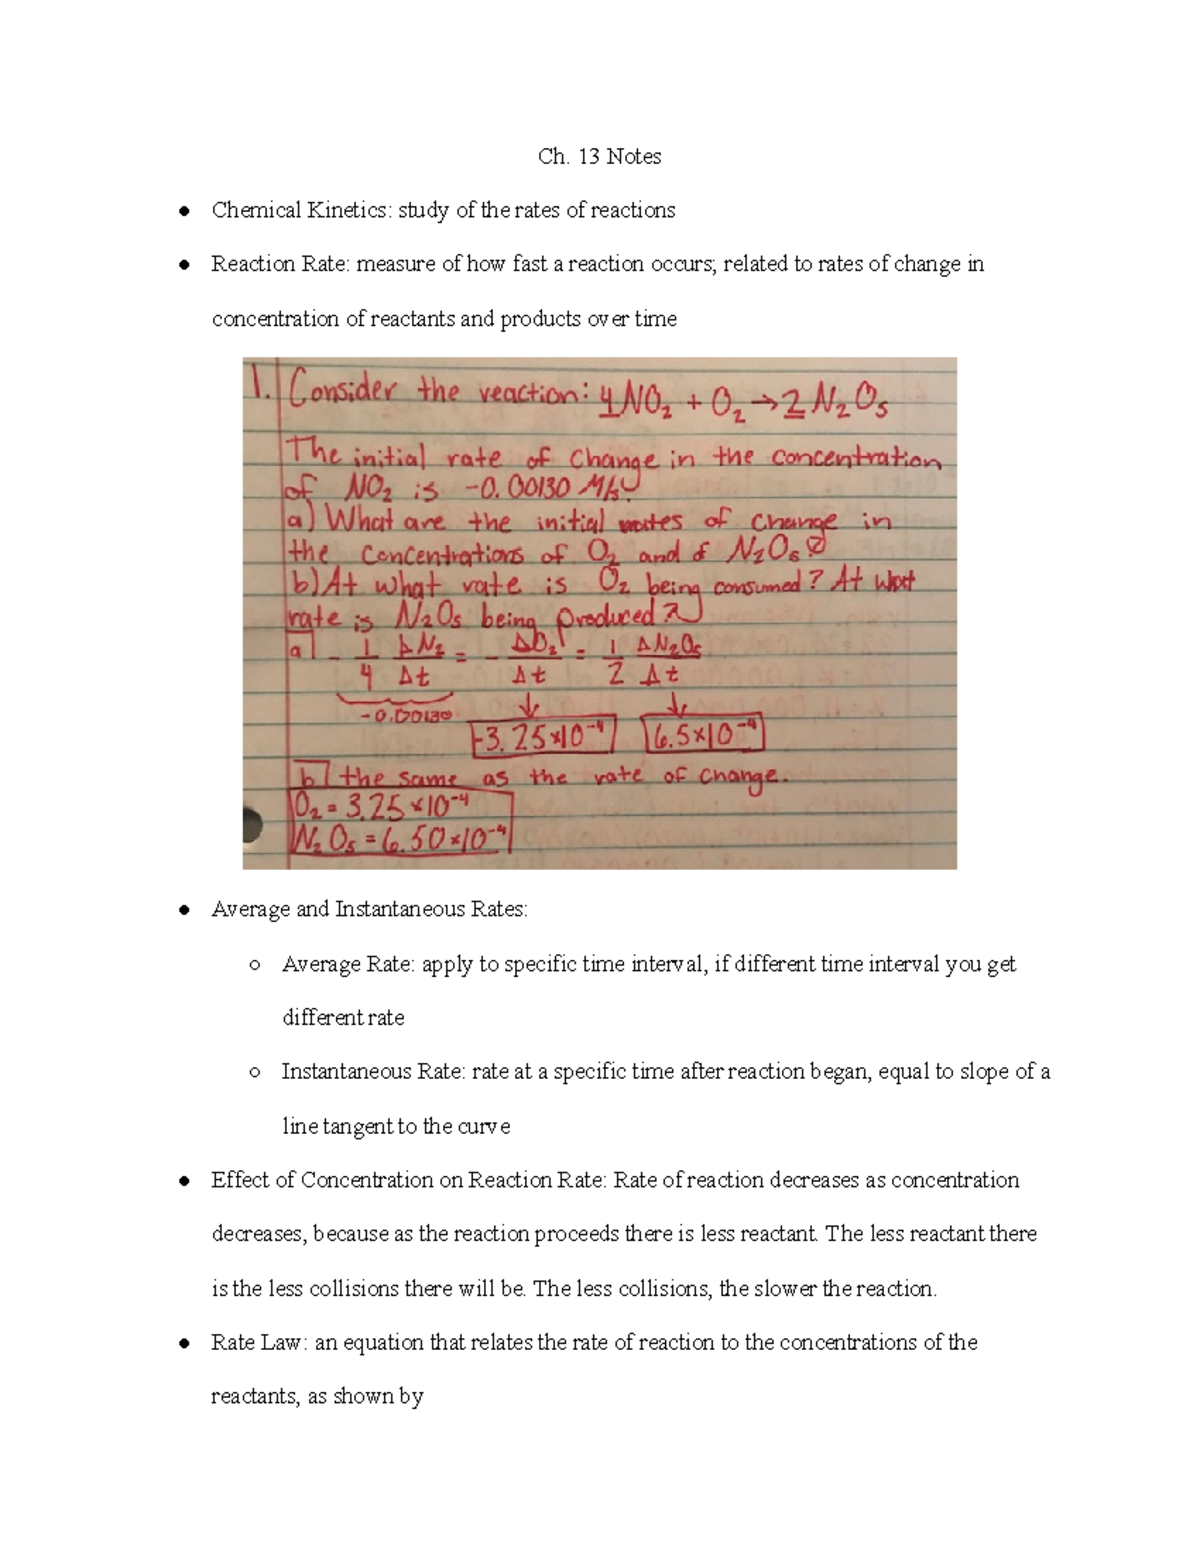 Ch. 13 Notes
● Chemical Kinetics: study of the rates of reactions
● Reaction Rate: measure of how fast a reaction occurs; related to rates of change in
concentration of reactants and products over time
1. Consider the reaction: 4NO₂ + O₂ → 2 N₂O₅
The initial rate of change in the concentration
of NO₂ is -0.00130 M/s.
a) What are the initial rates of change in
the concentrations of O₂ and of N₂O₅?
b) At what rate is O₂ being consumed? At what
rate is N₂O₅ being produced?
a) - 1/4 ΔN₂/Δt = - ΔO₂/Δt = 1/2 ΔN₂O₅/Δt
-0.00130 ↓ ↓
-3.25×10⁻⁴ 6.5×10⁻⁴
b) the same as the rate of change.
O₂ = 3.25×10⁻⁴
N₂O₅ = 6.50×10⁻⁴
● Average and Instantaneous Rates:
○ Average Rate: apply to specific time interval, if different time interval you get
different rate
○ Instantaneous Rate: rate at a specific time after reaction began, equal to slope of a
line tangent to the curve
● Effect of Concentration on Reaction Rate: Rate of reaction decreases as concentration
decreases, because as the reaction proceeds there is less reactant. The less reactant there
is the less collisions there will be. The less collisions, the slower the reaction.
● Rate Law: an equation that relates the rate of reaction to the concentrations of the
reactants, as shown by